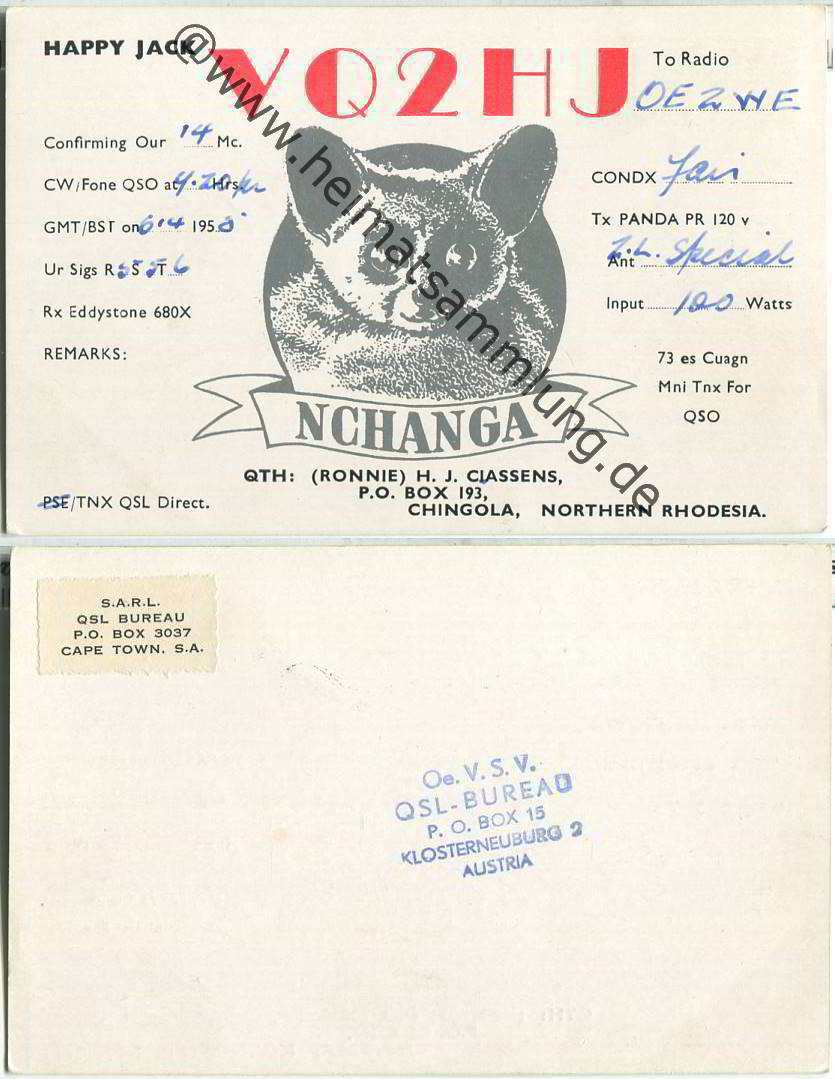 HAPPY JACK
VQ2HJ
To Radio
OE2WE
Confirming Our 14 Mc.
CW/Fone QSO at Hrs.
GMT/BST on 6.4 1958
Ur Sigs RS 5 T 6
Rx Eddystone 680X
REMARKS:
CONDX Fair
Tx PANDA PR 120 v
Ant Z.L. Special
Input 100 Watts
73 es Cuagn
Mni Tnx For
QSO
NCHANGA
QTH: (RONNIE) H. J. CIASSENS,
P.O. BOX 193,
CHINGOLA, NORTHERN RHODESIA.
PSE/TNX QSL Direct.
@www.heimatsammlung.de
S.A.R.L.
QSL BUREAU
P.O. BOX 3037
CAPE TOWN. S.A.
Oe. V. S. V.
QSL-BUREAU
P. O. BOX 15
KLOSTERNEUBURG 2
AUSTRIA